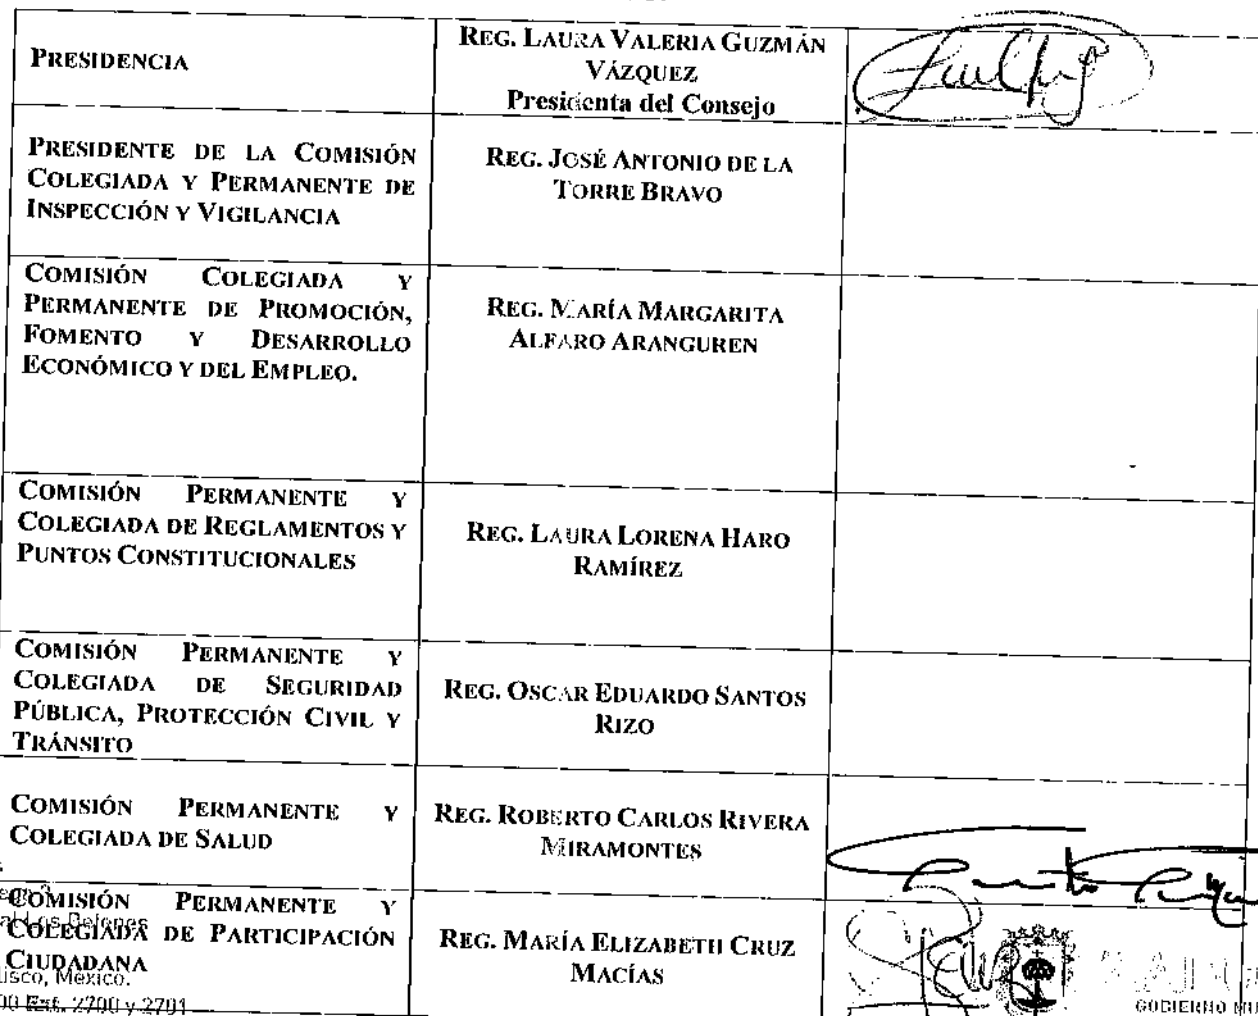 PRESIDENCIA
REG. LAURA VALERIA GUZMÁN
VÁZQUEZ
Presidenta del Consejo
PRESIDENTE DE LA COMISIÓN
COLEGIADA Y PERMANENTE DE
INSPECCIÓN Y VIGILANCIA
REG. JOSÉ ANTONIO DE LA
TORRE BRAVO
COMISIÓN COLEGIADA Y
PERMANENTE DE PROMOCIÓN,
FOMENTO Y DESARROLLO
ECONÓMICO Y DEL EMPLEO.
REG. MARÍA MARGARITA
ALFARO ARANGUREN
COMISIÓN PERMANENTE Y
COLEGIADA DE REGLAMENTOS Y
PUNTOS CONSTITUCIONALES
REG. LAURA LORENA HARO
RAMÍREZ
COMISIÓN PERMANENTE Y
COLEGIADA DE SEGURIDAD
PÚBLICA, PROTECCIÓN CIVIL Y
TRÁNSITO
REG. OSCAR EDUARDO SANTOS
RIZO
COMISIÓN PERMANENTE Y
COLEGIADA DE SALUD
REG. ROBERTO CARLOS RIVERA
MIRAMONTES
COMISIÓN PERMANENTE Y
COLEGIADA DE PARTICIPACIÓN
CIUDADANA
REG. MARÍA ELIZABETH CRUZ
MACÍAS
lisco, México.
00 Ext. 2700 y 2701
GOBIERNO MU